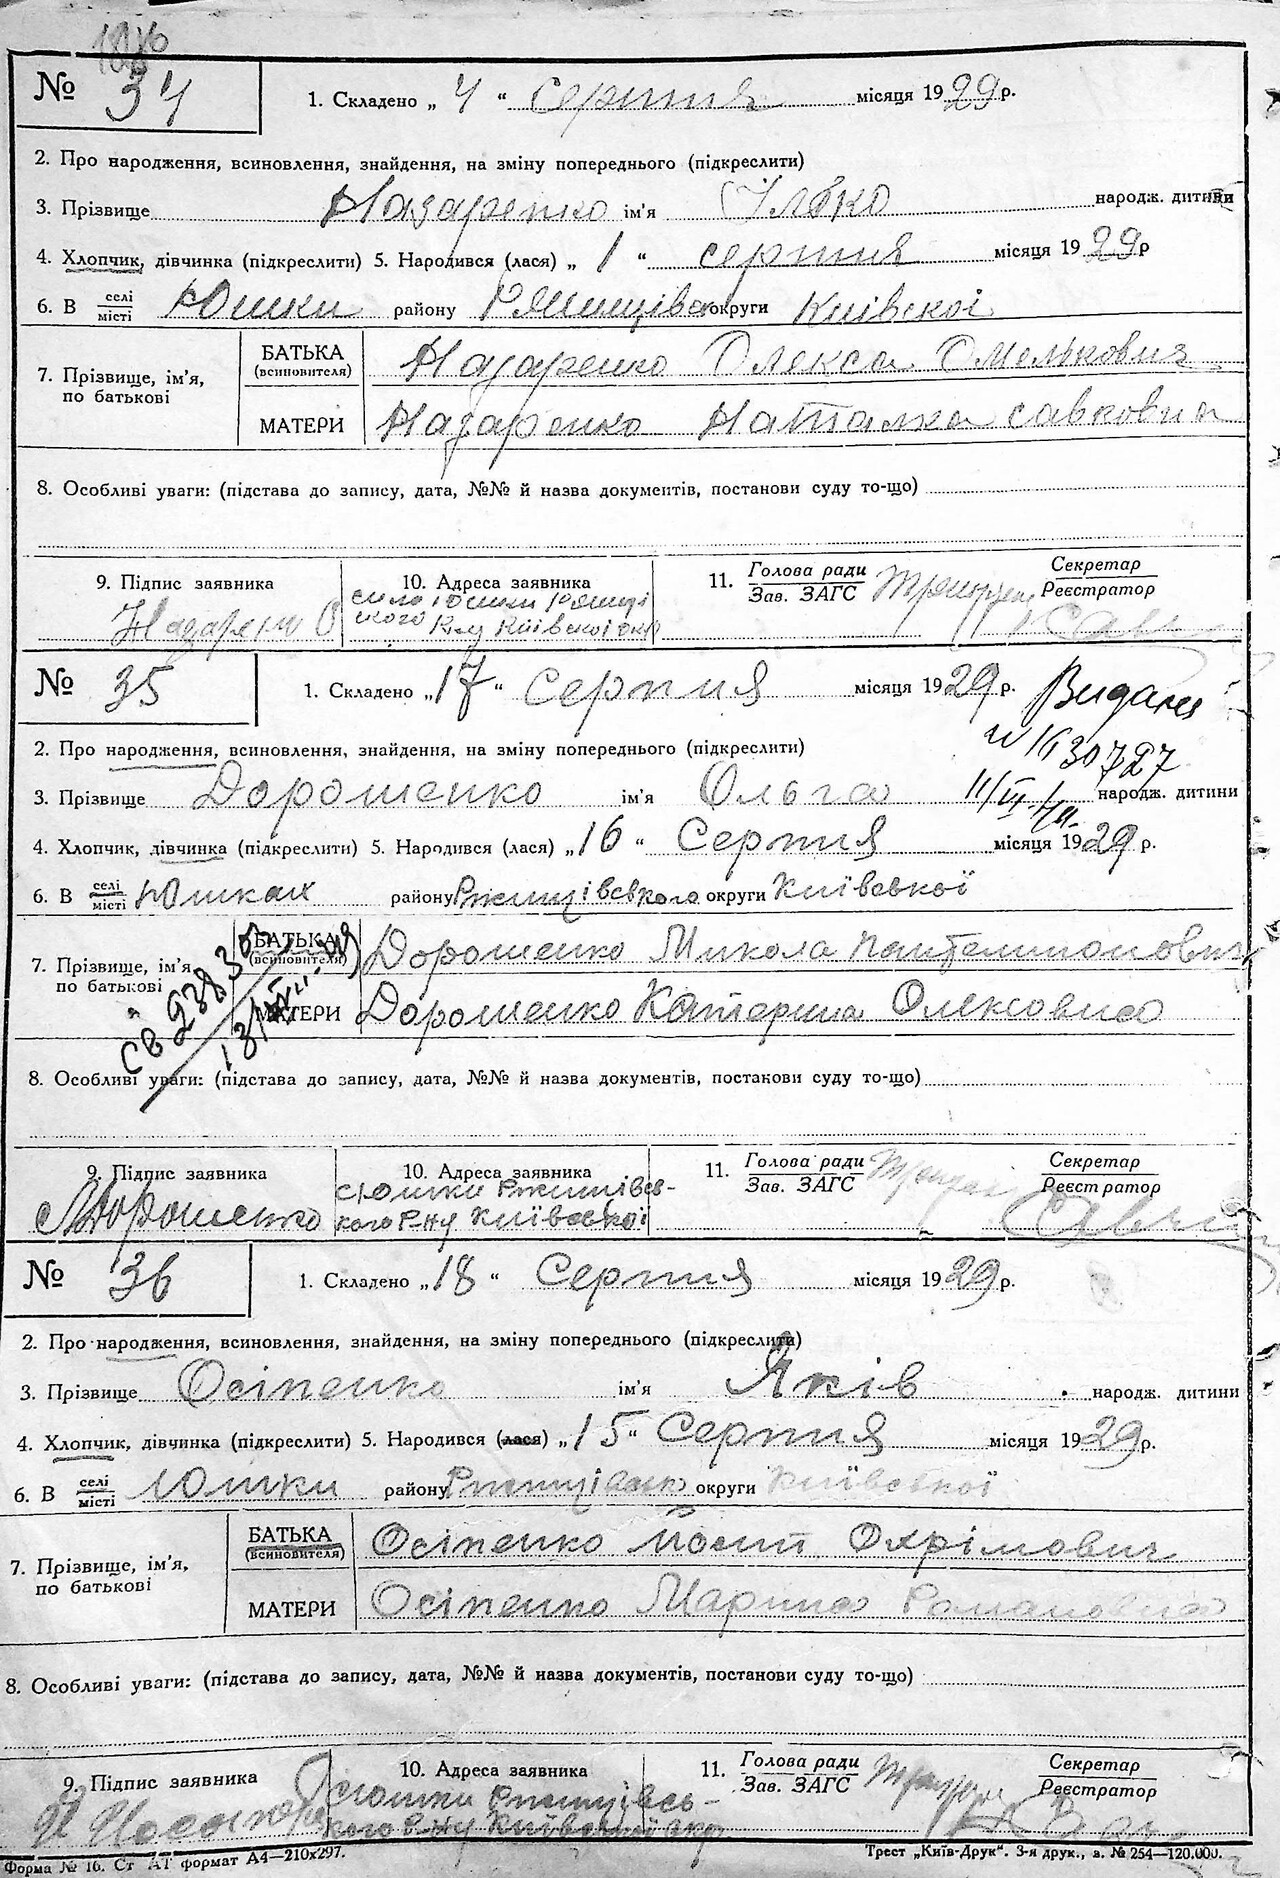 № 34
1. Складено „ 4 “ серпня місяця 1929 р.
2. Про народження, всиновлення, знайдення, на зміну попереднього (підкреслити)
3. Прізвище Назаренко ім'я Ілько народж. дитини
4. Хлопчик, дівчинка (підкреслити) 5. Народився (лася) „ 1 “ серпня місяця 1929 р
6. В селі/місті Юшки району Ржищівс округи Київскоі
7. Прізвище, ім'я, по батькові
БАТЬКА (всиновителя) Назаренко Олекса Омелькович
МАТЕРИ Назаренко Наталка Савковна
8. Особливі уваги: (підстава до запису, дата, №№ й назва документів, постанови суду то-що)
9. Підпис заявника
10. Адреса заявника
11. Голова ради / Зав. ЗАГС
Секретар / Реєстратор
село Юшки
Київскоі окр
№ 35
1. Складено „17“ Серпня місяця 1929 р. Видано
№ 1630727
2. Про народження, всиновлення, знайдення, на зміну попереднього (підкреслити)
3. Прізвище Дорошенко ім'я Ольга народж. дитини
4. Хлопчик, дівчинка (підкреслити) 5. Народився (лася) „16“ Серпня місяця 1929 р.
6. В селі/місті Юшках району Ржищівського округи Київської
7. Прізвище, ім'я, по батькові
БАТЬКА (всиновителя) Дорошенко Микола Пантелимонович
МАТЕРИ Дорошенко Катерина Олексовна
8. Особливі уваги: (підстава до запису, дата, №№ й назва документів, постакови суду то-що)
9. Підпис заявника
10. Адреса заявника
11. Голова ради / Зав. ЗАГС
Секретар / Реєстратор
Дорошенко
с Юшки Ржищівсь-
кого Р-ну Київської
№ 36
1. Складено „18“ Серпня місяця 1929 р.
2. Про народження, всиновлення, знайдення, на зміну попереднього (підкреслити)
3. Прізвище Осіпенко ім'я Яків народж. дитини
4. Хлопчик, дівчинка (підкреслити) 5. Народився (лася) „15“ Серпня місяця 1929 р.
6. В селі/місті Юшки району Ржищівськ округи Київської
7. Прізвище, ім'я, по батькові
БАТЬКА (всиновителя) Осіпенко Йосип Охрімович
МАТЕРИ Осіпенко Марина Романовна
8. Особливі уваги: (підстава до запису, дата, №№ й назва документів, постанови суду то-що)
9. Підпис заявника
10. Адреса заявника
11. Голова ради / Зав. ЗАГС
Секретар / Реєстратор
с Юшки Ржищівсь-
кого Р-ну Київської окр
Форма № 16. Ст АТ формат А4—210х297.
Трест „Київ-Друк“. 3-я друк., в. № 254—120.000.